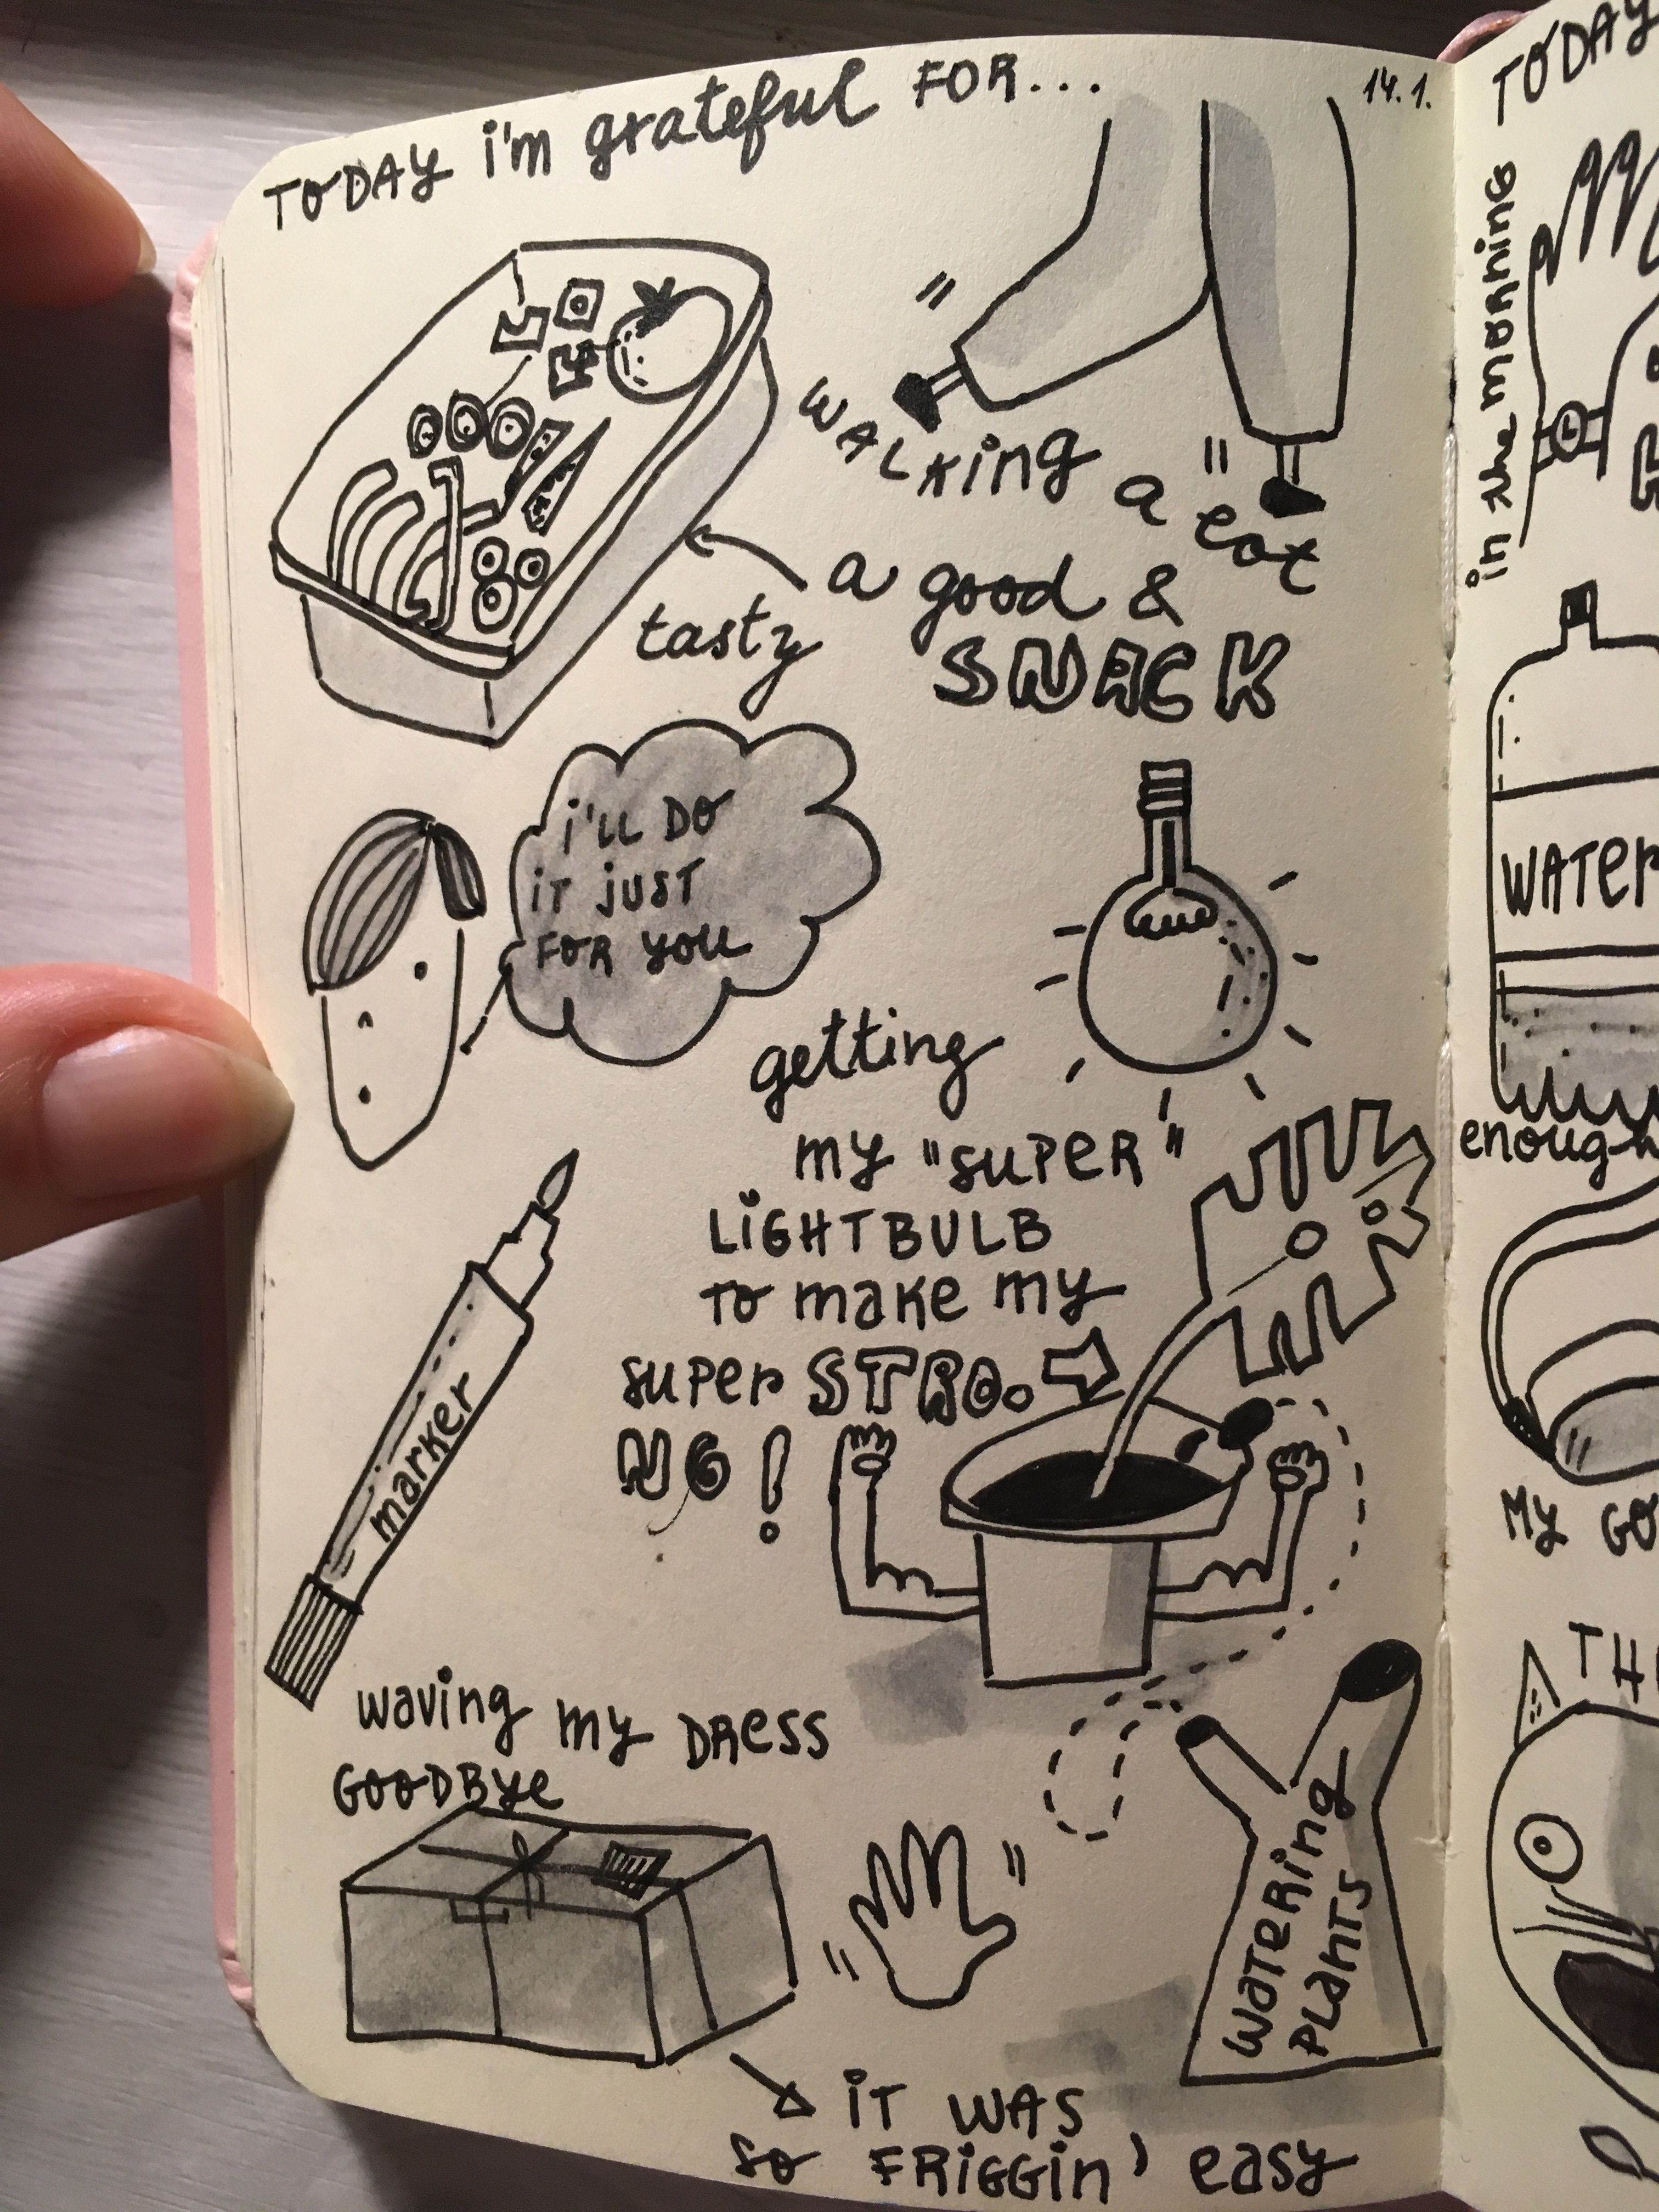 TODAY i'm grateful FOR...
14.1.
WALKing a lot
a good &
tasty
SNACK
i'LL DO
iT jUST
FOR YOU
getting
my "SUPER"
LiGHTBULB
TO make my
super STRO
NG!
marker
waving my DRess
GOODBye
WATERing
PLANTS
iT WAS
SO FRiGGin' easy
TODAY
in the morning
WATer
enough
MY GO
TH